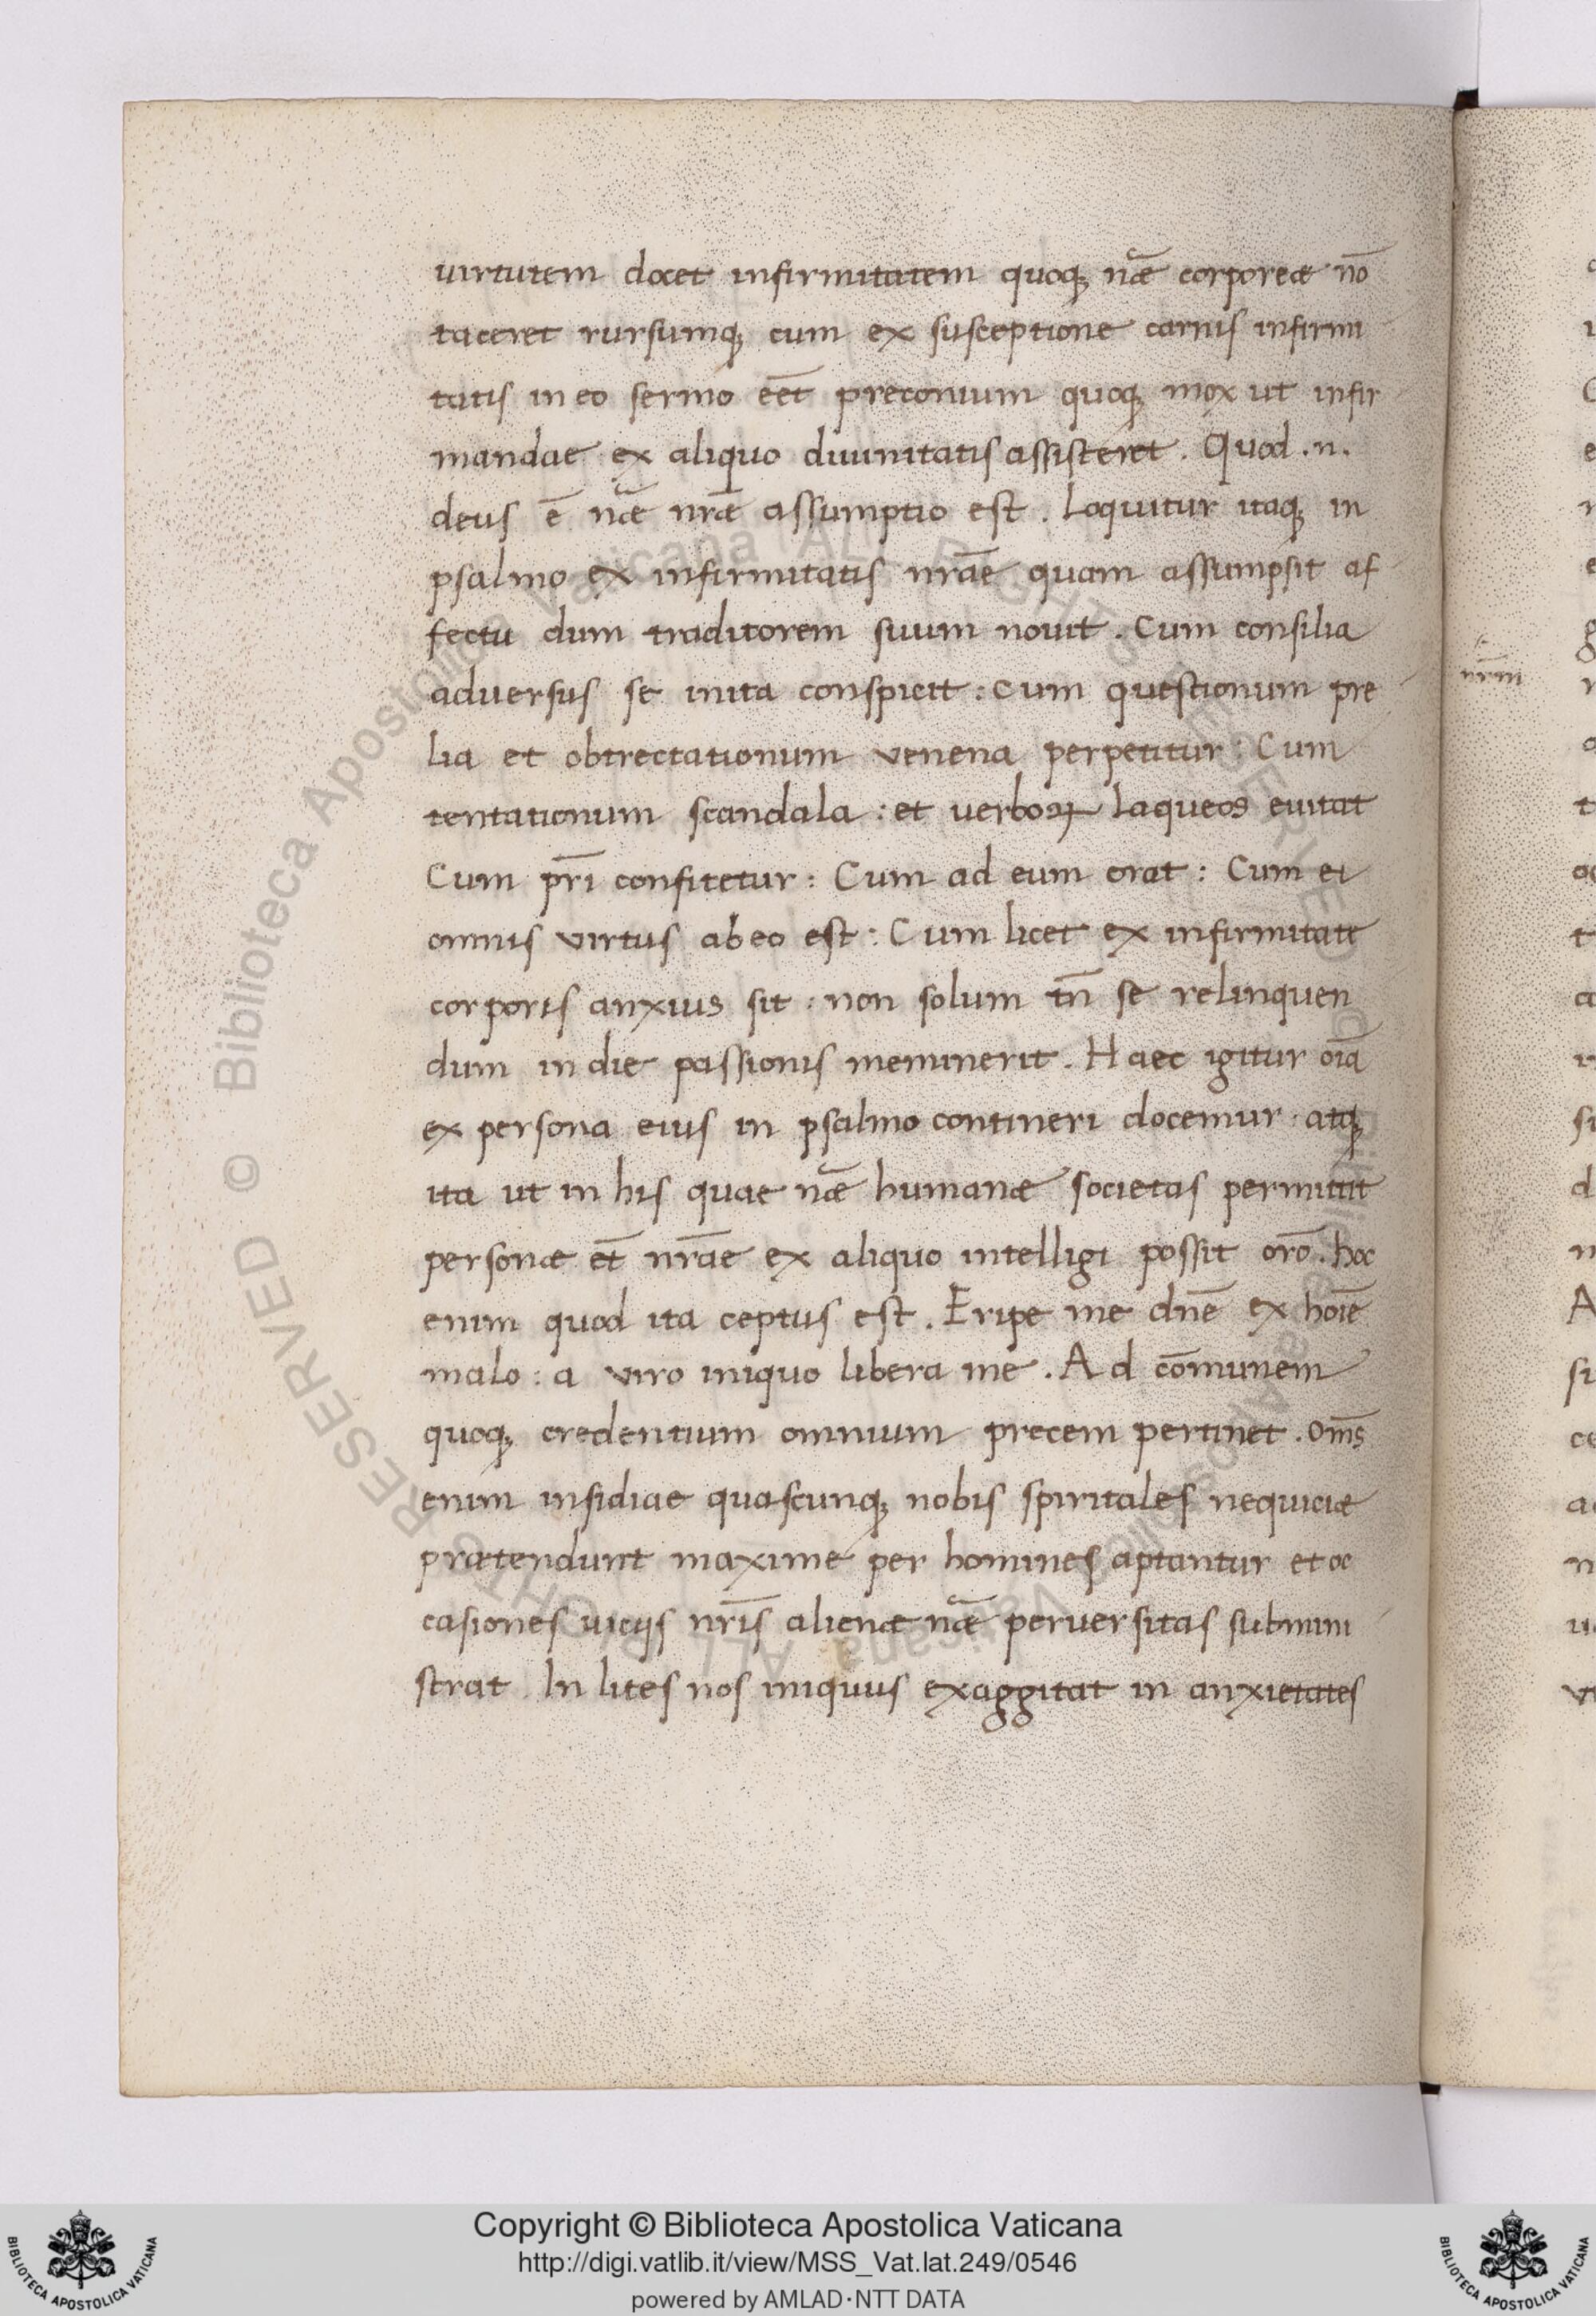 uirtutem docet infirmitatem quoq; nāe corporeæ nō
taceret rursumq; cum ex susceptione carnis infirmi
tatis in eo sermo eēt preconium quoq; mox ut infir
mandae ex aliquo diuinitatis assisteret. Quod .n.
deus ē nāe nrāe assumptio est. Loquitur itaq; in
psalmo ex infirmitatis nrāe quam assumpsit af
fectu dum traditorem suum nouit. Cum consilia
aduersus se inita conspicit: Cum questionum pre
lia et obtrectationum venena perpetitur: Cum
tentationum scandala: et verboꝝ laqueos euitat
Cum pr̄i confitetur: Cum ad eum orat: Cum ei
omnis virtus ab eo est: Cum licet ex infirmitate
corporis anxius sit: non solum tn̄ se relinquen
dum in die passionis meminerit. Haec igitur oīa
ex persona eius in psalmo contineri docemur. atq;
ita ut in his quae nāe humanæ societas permittit
personæ et̄ nrāe ex aliquo intelligi possit orō. hoc
enim quod ita ceptus est. Eripe me dnē ex hoīe
malo: a viro iniquo libera me. Ad cōmunem
quoq; credentium omnium precem pertinet. Om̄s
enim insidiae quascunq; nobis spiritales nequiciæ
prætendunt maxime per homines aptantur et oc
casiones uicijs nr̄is alienæ nāe peruersitas submini
strat. In lites nos iniquus exaggitat in anxietates
nr̄m
Copyright © Biblioteca Apostolica Vaticana
http://digi.vatlib.it/view/MSS_Vat.lat.249/0546
powered by AMLAD·NTT DATA
BIBLIOTECA APOSTOLICA VATICANA
BIBLIOTECA APOSTOLICA VATICANA
© Biblioteca Apostolica Vaticana ALL RIGHTS RESERVED © Biblioteca Apostolica Vaticana ALL RIGHTS RESERVED